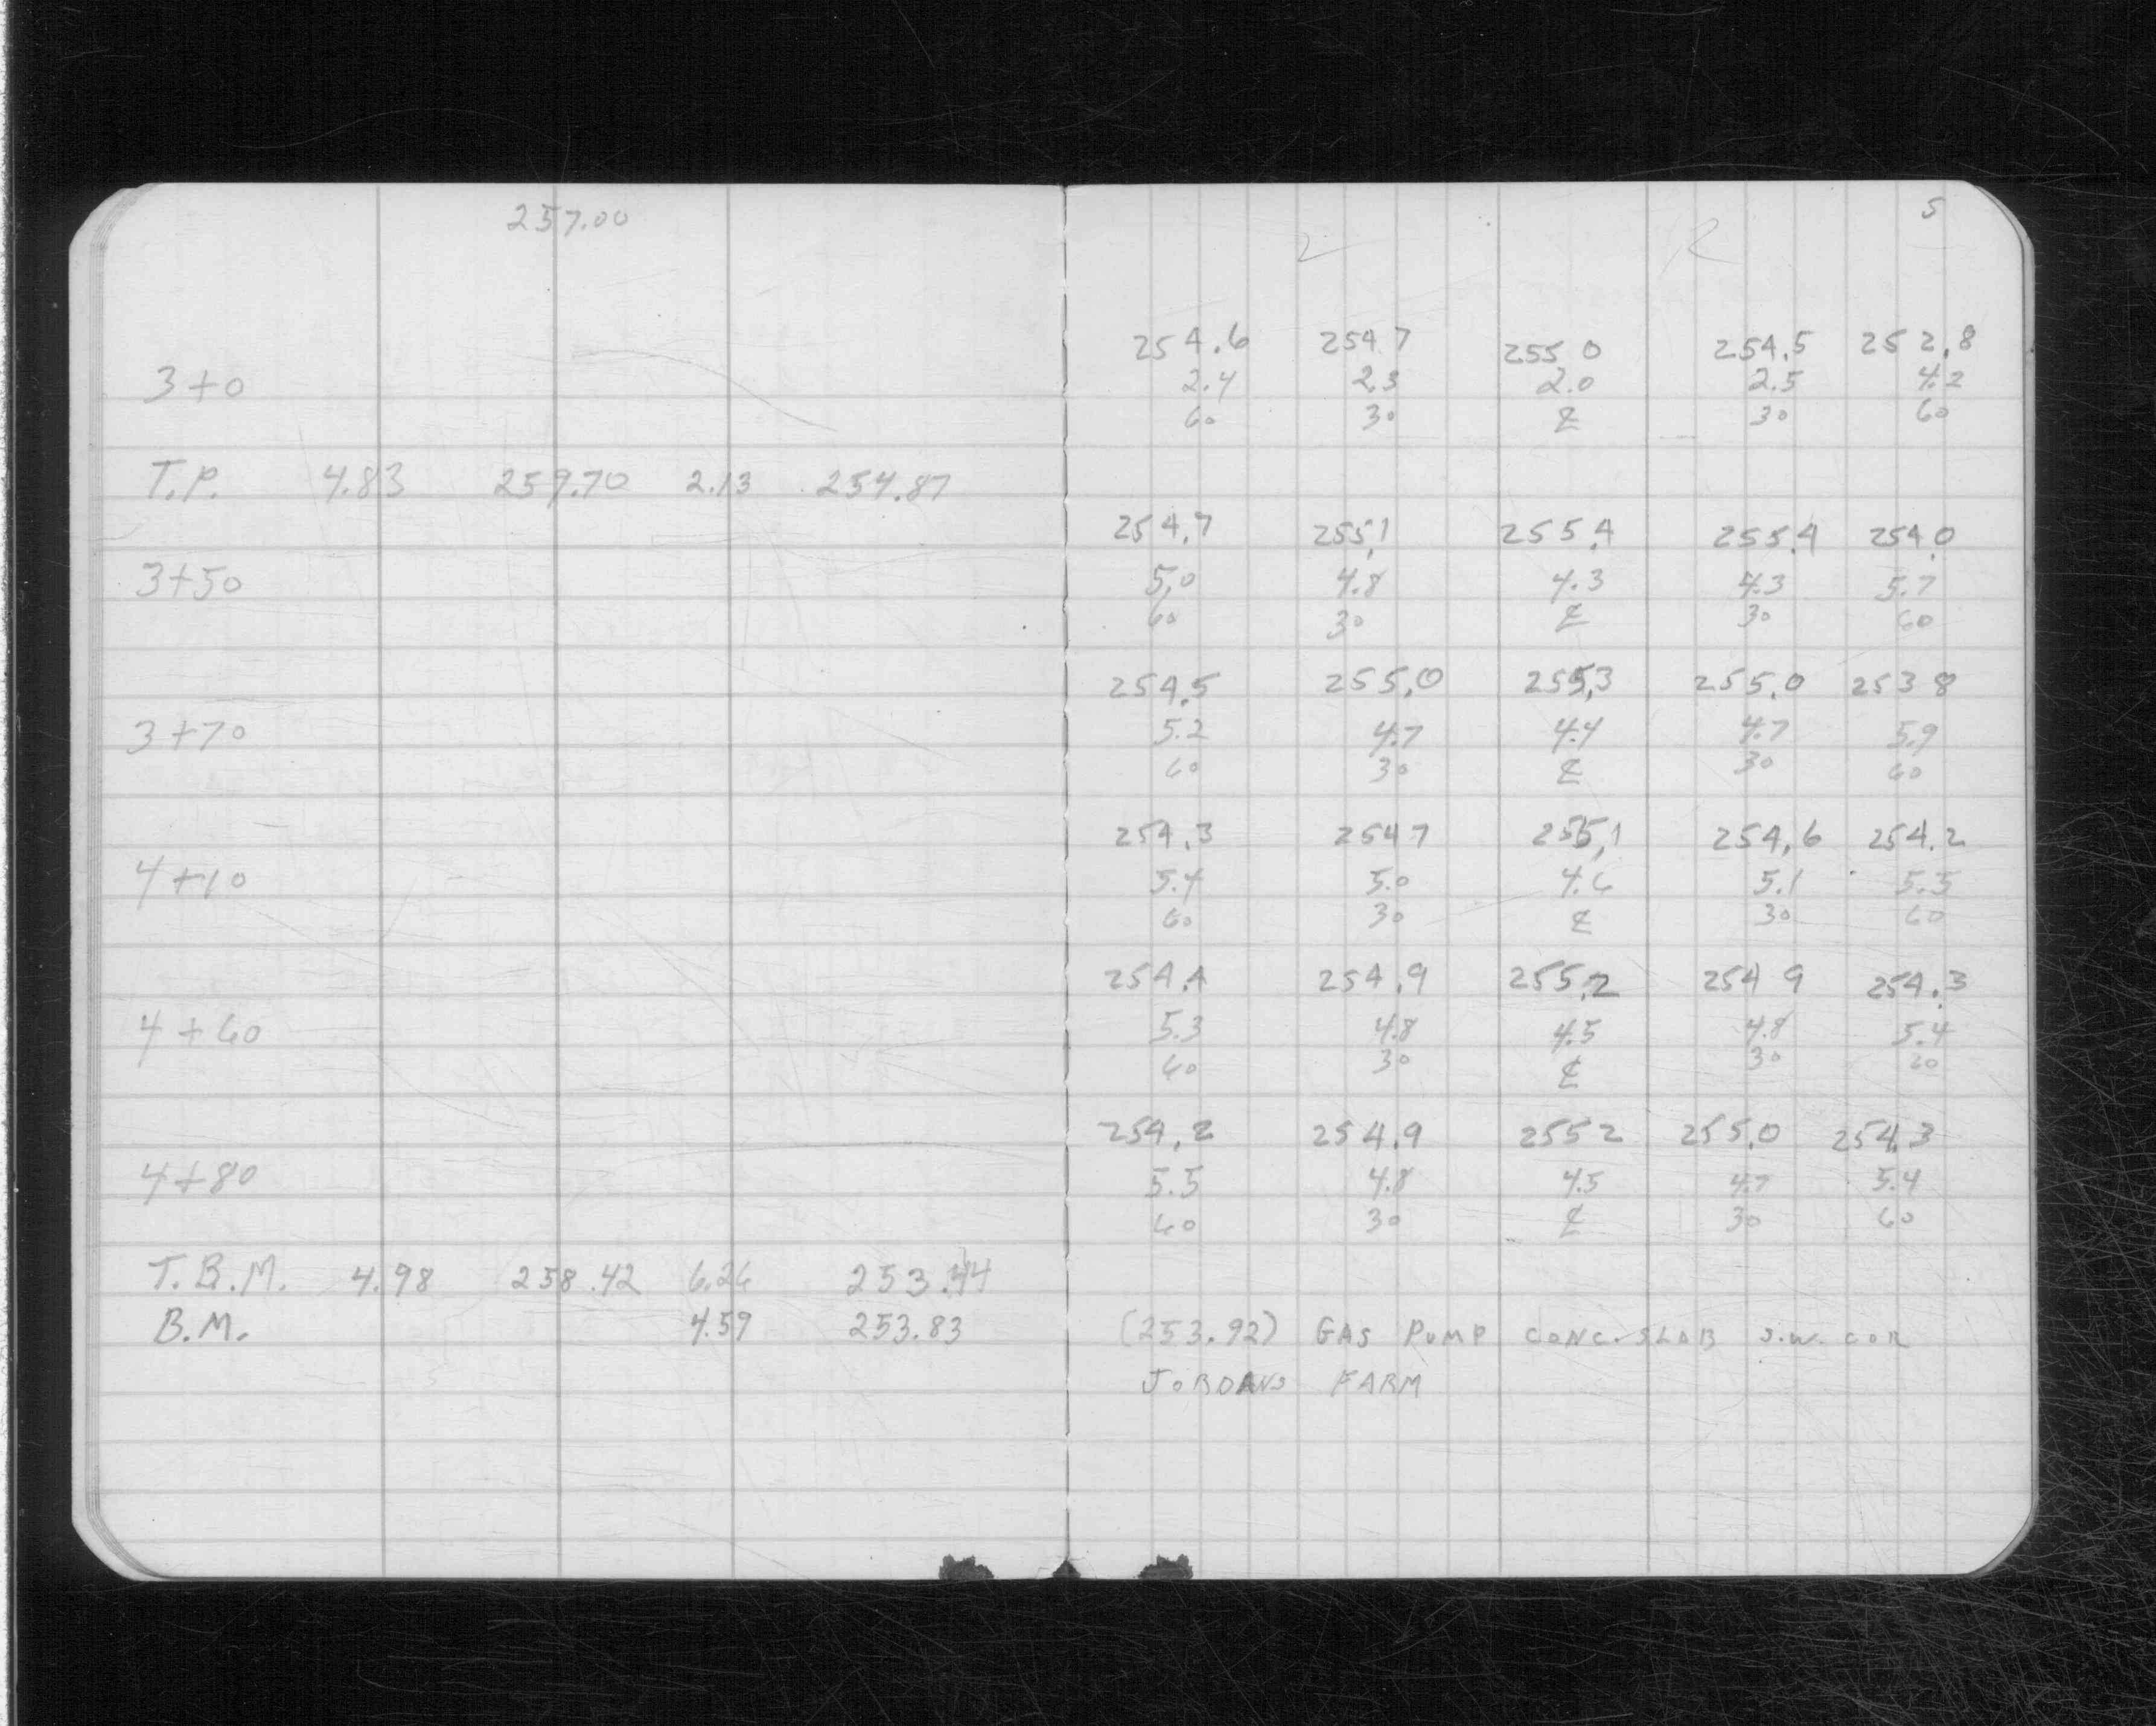 257.00
5
L R
254.6 254 7 255 0 254.5 252.8
3+0 2.4 2.3 2.0 2.5 4.2
60 30 ℄ 30 60
T.P. 4.83 259.70 2.13 254.87
254.7 255.1 255.4 255.4 254.0
3+50 5.0 4.8 4.3 4.3 5.7
60 30 ℄ 30 60
254.5 255.0 255.3 255.0 253 8
3+70 5.2 4.7 4.4 4.7 5.9
60 30 ℄ 30 60
254.3 254 7 255.1 254.6 254.2
4+10 5.4 5.0 4.6 5.1 5.5
60 30 ℄ 30 60
254.4 254.9 255.2 254 9 254.3
4+60 5.3 4.8 4.5 4.8 5.4
60 30 ℄ 30 60
254.2 254.9 255 2 255.0 254.3
4+80 5.5 4.8 4.5 4.7 5.4
60 30 ℄ 30 60
T.B.M. 4.98 258.42 6.26 253.44
B.M. 4.59 253.83 (253.92) GAS PUMP CONC. SLAB S.W. COR
JORDANS FARM